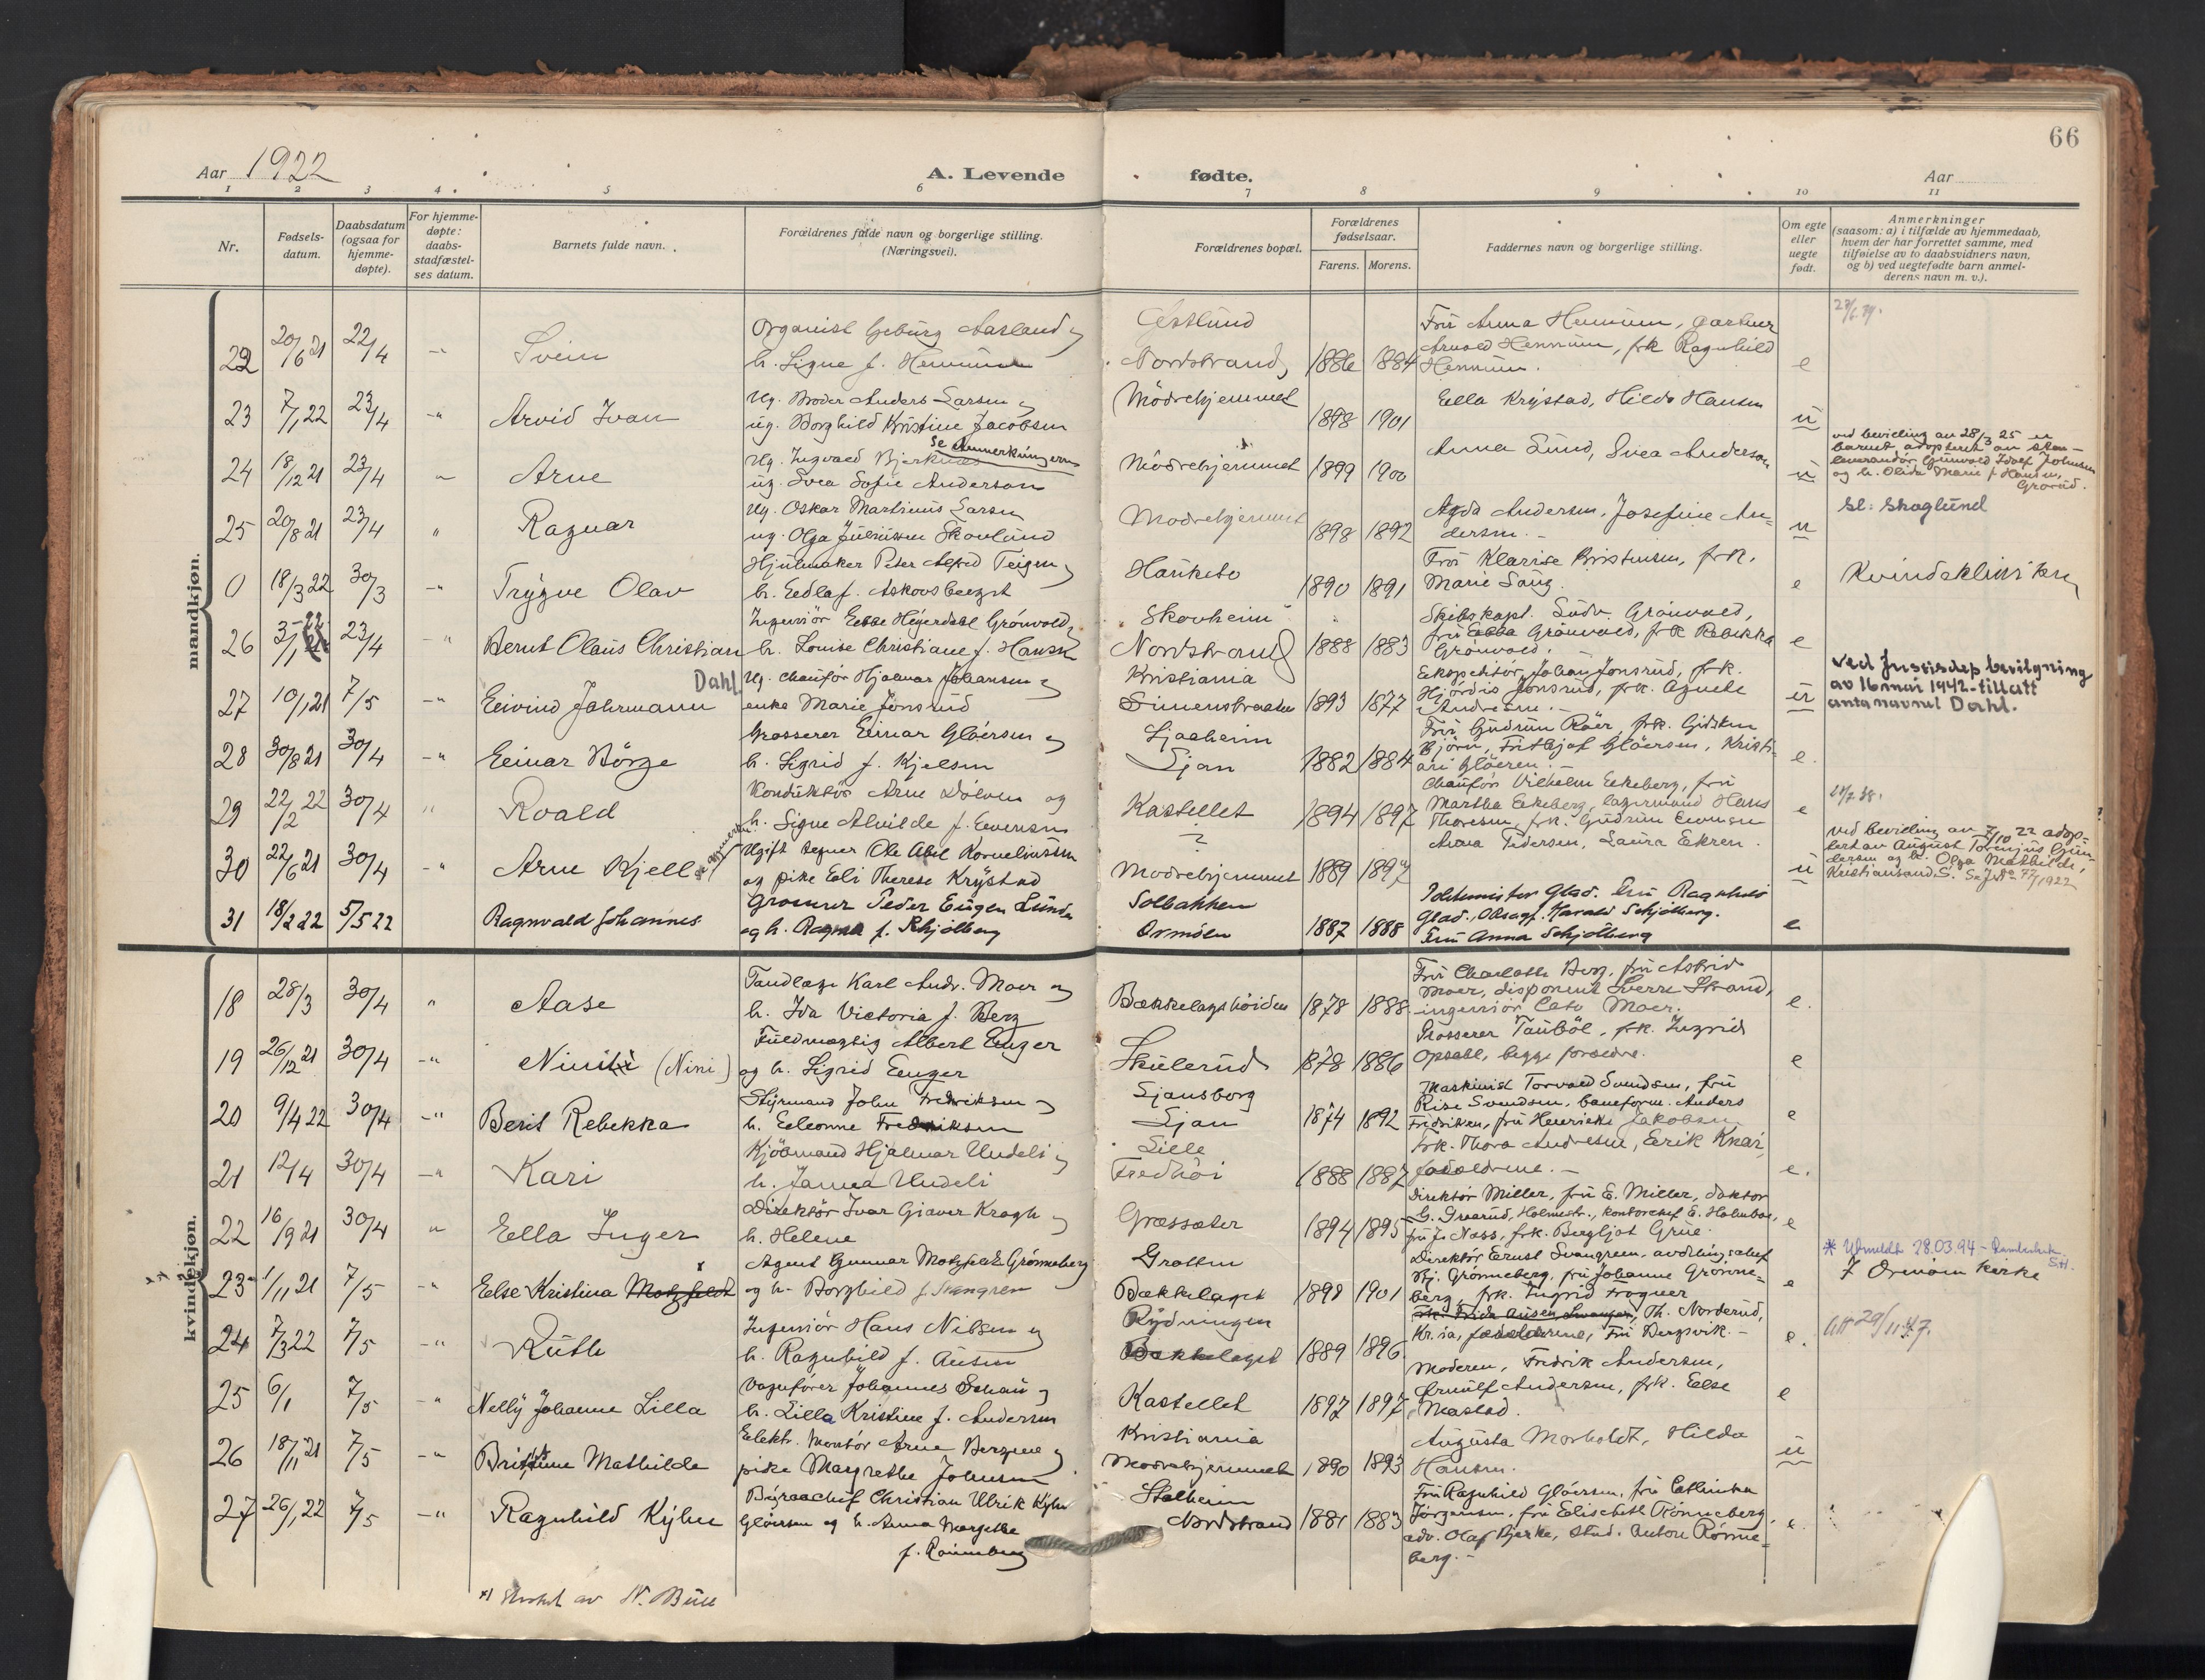 66
Aar 1922
A. Levende
fødte.
Aar
1 2 3 4 5 6 7 8 9 10 11
Nr.
Fødsels-
datum.
Daabsdatum
(ogsaa for
hjemme-
døpte).
For hjemme-
døpte:
daabs-
stadfæstel-
ses datum.
Barnets fulde navn.
Forældrenes fulde navn og borgerlige stilling.
(Næringsvei).
Forældrenes bopæl.
Forældrenes
fødselsaar.
Farens. Morens.
Faddernes navn og borgerlige stilling.
Om egte
eller
uegte
født.
Anmerkninger
(saasom: a) i tilfælde av hjemmedaab,
hvem der har forrettet samme, med
tilføielse av to daabsvidners navn,
og b) ved uegtefødte barn anmel-
derens navn m. v.).
mandkjøn.
22 20/6 21 22/4 -"- Svein
Organist Aasland og
h. Signe f. Hennum
Nordstrand 1886 1884
Fru Anna Hennum, gartner
Arnold Hennum, frk Ragnhild
Hennum. e
23 7/1 22 23/4 -"- Arvid Ivan
Ug. Anders Larsen og
ug. Borghild Kristine Jacobsen
Mødrehjemmet 1898 1901
Ella Krystad, Hilda Hansen u
24 18/12 21 23/4 " Arne
se Anmerkningerne
Ug. Ingvald Bjerknes
ug. Svea Sofie Anderson
Mødrehjemmet 1899 1900
Anna Lund, Svea Anderson u
ved bevilling av 28/3 25 er
barnet adopteret av
og h. Olida Marie f. Hansen,
Grorud.
25 20/8 21 23/4 " Ragnar
Ug. Oskar Martinus Larsen
ug. Olga Skovlund
Mødrehjemmet 1898 1892
Agda Andersen, Josefine An-
dersen. - u
sl: Skoglund
0 18/3 22 30/3 -"- Trygve Olav
Hjulmaker Peter Alfred Teigen og
h. Edla f. Askovsberget
Hauketo 1890 1891
Fru Klarise Kristensen, frk.
Marie Saug. e
Kvindeklinikken
26 3/1 22 23/4 -"- Bernt Olaus Christian
Ingeniør Ebbe Grönvold,
h. Louise Christiane f. Hansen
Skovheim
Nordstrand 1888 1883
Skibskapt. Ludv. Grönvold,
fru Ebba Grönvold, frk Rebekka
Grönvold. e
27 10/1 21 7/5 -"- Eivind Johrmann Dahl
Ug. chauför Hjalmar Johansen og
enke Marie Jonsrud
Kristiania
1893 1877
Ekspeditör Johan Jonsrud, frk.
Hjördis Jonsrud, frk. Agnete
Andresen. - u
Ved Justisdep bevilgning
av 16 mai 1942 tillatt
anta navnet Dahl.
28 30/8 21 30/4 -"- Einar Börge
Grosserer Einar Glöersen og
h. Sigrid f. Kjelsen
Ljacheim
Ljan 1882 1884
Fru Gudrun Röer, frk. Gidsken
Björn, Fritjof Glöersen, Kristi-
an Glöersen. - e.
29 22/2 22 30/4 " Roald
Konduktör Arne og
h. Signe Alvilde f. Evensen
Kastellet 1894 1897
Chauför Vilhelm Ekeberg, fru
Martha Ekeberg, lagermand Hans
Thoresen, frk. Gudrun Evensen e
30 22/6 21 30/4 " Arne Kjell
Ugift tegner Ole Abel Korneliussen
og pike Eli Therese Krystad
?
Mødrehjemmet 1889 1897
Anna Pedersen, Laura Ekren. u
ved bevilling av 7/10 22 adop-
tert av August
og h. Olga Mathilde,
Kristiansand S.
31 18/2 22 5/5 22 Ragnvald Johannes
Grosserer Peder Eugen Lunde
og h. Ragna f. Schjölberg
Solbakken
Ormöen 1887 1888
Glad. Fru Ragnhild
Glad, Harald Schjölberg.
Fru Anna Schjölberg e
kvindekjøn.
18 28/3 30/4 " Aase
Tandlæge Karl Andr. Moer og
h. Ida Victoria f. Berg
Bækkelagshöiden 1878 1888
Fru Charlotte Berg, fru Astrid
Moer, disponent Sverre Strand,
ingeniör Cato Moer. e.
19 26/12 21 30/4 -"- (Nini)
Fuldmægtig Albert Enger
og h. Sigrid Enger
Skulerud 1878 1886
Grosserer Tauböl, frk. Ingrid
Opsahl, begge forældre. e
20 9/4 22 30/4 -"- Berit Rebekka
Styrmand John Fredriksen og
h. Eleonne Fredriksen
Ljansborg
Ljan 1874 1892
Maskinist Torvald Svendsen, fru
Rise Svendsen, baneform. Anders
Fredriksen, fru Henrikke Jakobsen e
21 12/4 30/4 -"- Kari
Kjöbmand Hjalmar Undeli og
h. Janna Undeli
Lille
Fredhöi 1888 1887
frk. Thora Andresen, Erik Knar,
forældrene. - e.
22 16/9 21 30/4 " Ella Inger
Direktör Ivar Giæver Krogh og
h. Helene
Græssæter 1894 1895
Direktör Miller, fru E. Miller, doktor
G. Graarud, Holmestr., kontorchef E. Holmboe,
fru J. Næss, frk. Bergljot Grue. e
23 1/11 21 7/5 " Else Kristina Motzfeldt
Agent Gunnar Motzfeldt Grönneberg
og h. Borghild f. Svangren
Grotten
Bækkelaget 1898 1901
Direktör Ernst Svangreen, avdelingschef
Hj. Grönneberg, fru Johanne Grönne-
berg, frk. Ingrid Frogner e
* Utmeldt 28.03.94 -
24 7/3 22 7/5 -"- Ruth
Ingeniör Hans Nilsen og
h. Ragnhild f. Ausen
Rydningen
Bækkelaget 1889 1896
Th. Norderud,
Kr.ia, forældrene, Fru Bergsvik. - e.
25 6/1 7/5 -"- Nelly Johanne Lilla
Vognfører Johannes Schau og
h. Lilla Kristine f. Andersen
Kastellet 1897 1897
Moderen, Fredrik Andersen,
Arnulf Andersen, frk. Else
Mastad. e
26 18/11 21 7/5 -"- Mathilde
Elektr. Montör Arne Bergene og
pike Margrethe Johnsen
Kristiania
Mødrehjemmet 1890 1893
Augusta Morholdt, Hilda
Hansen. u
27 26/1 22 7/5 -"- Ragnhild Kyhn
Byraachef Christian Ulrik Kyhn
Glöersen og h. Anna Margrethe
f. Rönneberg
Stolheim
Nordstrand 1881 1883
Fru Ragnhild Glöersen, fru Cathinka
Jörgensen, fru Elisabeth Rönneberg,
adv. Olaf Bjerke, stud. Anton Rönne-
berg. - e.
x) Strøket av N. Bull